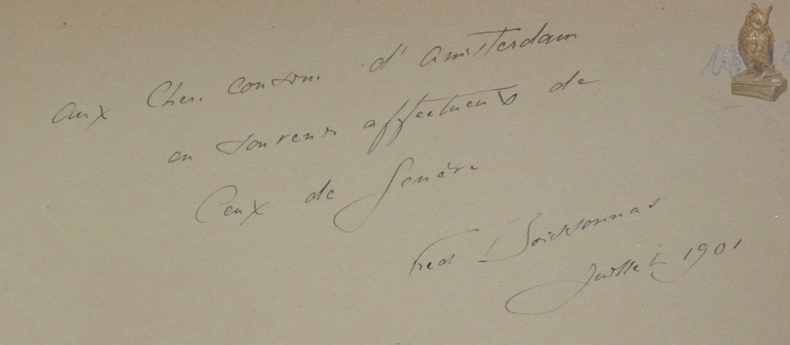 aux Chers cousins d'Amsterdam
en souvenir affectueux de
Ceux de Genève
Fred Boissonnas
Juillet 1901